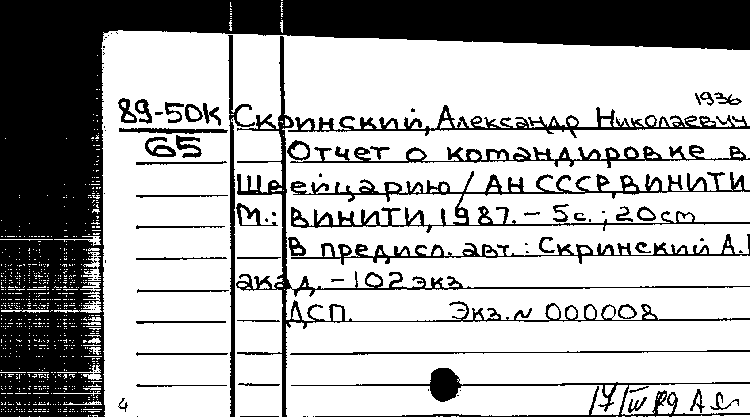 1936
89-50К Скринский, Александр Николаевич
65 Отчет о командировке в
Швейцарию / АН СССР, ВИНИТИ
М.: ВИНИТИ, 1987. - 5с.; 20cm
В предисл. авт.: Скринский А.
акад. - 102 экз
ДСП. Экз. № 000008
17/IV 89
4